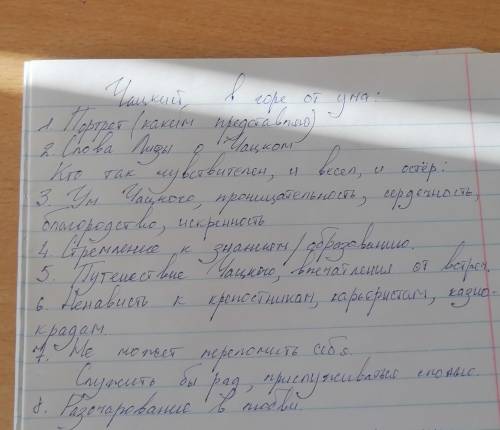 Чацкий, в горе от ума:
1. Портрет (каким представляю)
2. Слова Лизы о Чацком
Кто так чувствителен, и весел, и остёр!
3. Ум Чацкого, проницательность, сердечность,
благородство, искренность
4. Стремление к знаниям/образованию.
5. Путешествие Чацкого, впечатления от встреч.
6. Ненависть к крепостникам, карьеристам, казно-
крадам
7. Не может переломить себя.
Служить бы рад, прислуживаться тошно.
8. Разочарование в любви.